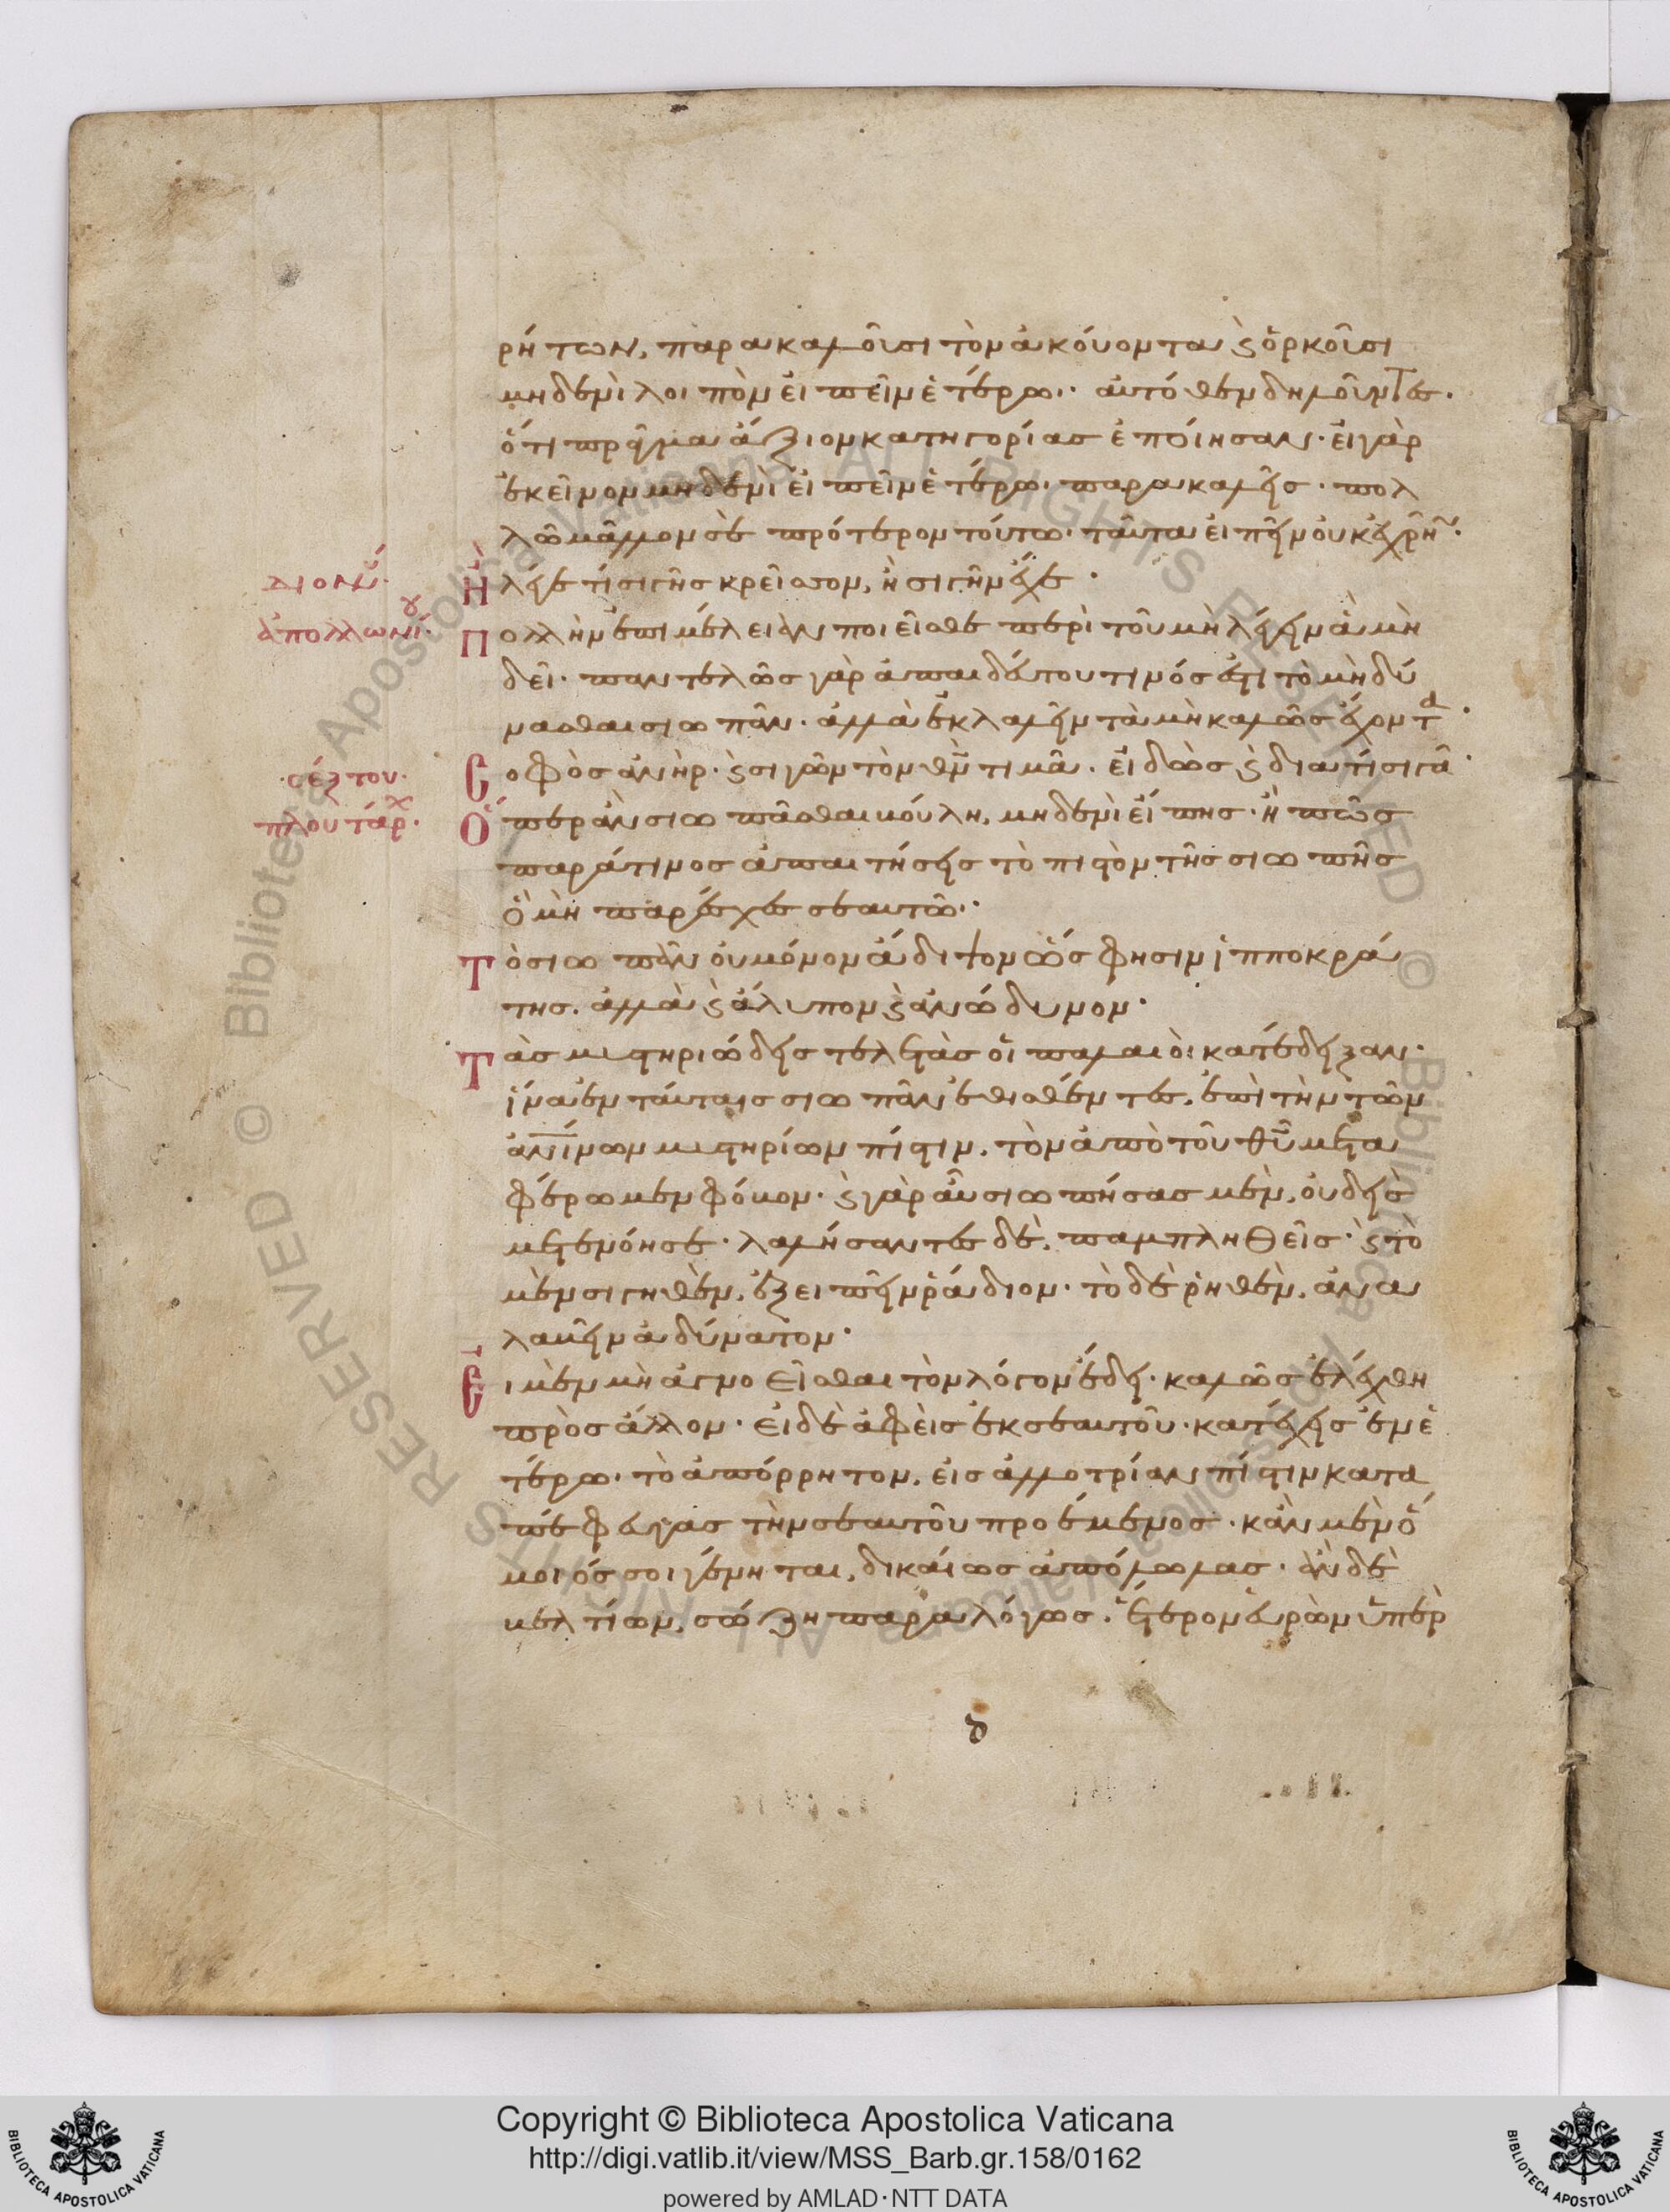 ρήτων, παρακαλοῦσι τὸν ἀκούοντα ϗ ὁρκοῦσι
μηδενὶ λοιπὸν εἰπεῖν ἑτέρω· αὐτόθεν δηλοῦντες·
ὅτι πρᾶγμα ἄξιον κατηγορίας ἐποίησαν· εἰ γὰρ
ἐκεῖνον μηδενὶ εἰπεῖν ἑτέρω παρακαλεῖς· πολ
λῶ μᾶλλον σὲ πρότερον τούτω ταῦτα εἰπεῖν οὐκ ἐχρῆν·
διονυ·
Ἢ λέγε τί σιγῆς κρεῖσσον, ἢ σιγὴν ἔχε·
ἀπολλωνίου·
Πολλὴν ἐπιμέλειαν ποιεῖσθε περὶ τοῦ μὴ λέγειν ἃ μὴ
δεῖ· παντελῶς γὰρ ἀπαιδεύτου τινός ἐστι τὸ μὴ δύ
νασθαι σιωπᾶν· ἀλλὰ ἐκλαλεῖν τὰ μὴ καλῶς ἔχοντα·
·σέξτου·
Σοφὸς ἀνὴρ· ϗ σιγῶν τὸν θν τιμᾶ· εἰδὼς ϗ διατί σιγᾶ·
πλουτάρχ·
Ὅπερ ἂν σιωπᾶσθαι βούλη, μηδενὶ εἴπης· ἢ πῶς
παρά τινος ἀπαιτήσεις τὸ πιστὸν τῆς σιωπῆς
ὃ μὴ παρέσχες σεαυτῶ·
Τὸ σιωπᾶν οὐ μόνον ἄδιψον ὥς φησιν ἱπποκρά
της. ἀλλὰ ϗ ἄλυπον ϗ ἀνώδυνον·
Τὰς μυστηριώδεις τελετὰς οἱ παλαιοὶ κατέδειξαν·
ἵνα ἐν ταύταις σιωπᾶν ἐθισθέντες, ἐπὶ τὴν τῶν
ἀνίνων μυστηρίων πίστιν, τὸν ἀπὸ τοῦ θυ μετα
φέρωμεν φόβον· ϗ γὰρ αὖ σιωπήσας μὲν, οὐδεὶς
μετενόησε· λαλήσαντες δὲ, παμπληθεῖς· ϗ τὸ
μὲν σιγηθὲν, ἐξειπεῖν ῥάδιον· τὸ δὲ ῥηθὲν, ἀνα
λαβεῖν ἀδύνατον·
Εἰ μὲν μὴ ἀγνοεῖσθαι τὸν λόγον ἔδει· καλῶς ἐλέχθη
πρὸς ἄλλον· εἰ δὲ ἀφεὶς ἐκ σεαυτοῦ· κατέχεις ἐν ἑ
τέρω τὸ ἀπόρρητον, εἰς ἀλλοτρίαν πίστιν κατα
πέφευγας τὴν σεαυτοῦ προέμενος· κἂν μὲν ὅ
μοιός σοι γένηται, δικαίως ἀπόλωλας· ἂν δὲ
βελτίων, σώζη παραλόγως, ἕτερον εὑρὼν ὑπὲρ
δ
Copyright © Biblioteca Apostolica Vaticana
http://digi.vatlib.it/view/MSS_Barb.gr.158/0162
powered by AMLAD·NTT DATA
BIBLIOTECA APOSTOLICA VATICANA
BIBLIOTECA APOSTOLICA VATICANA